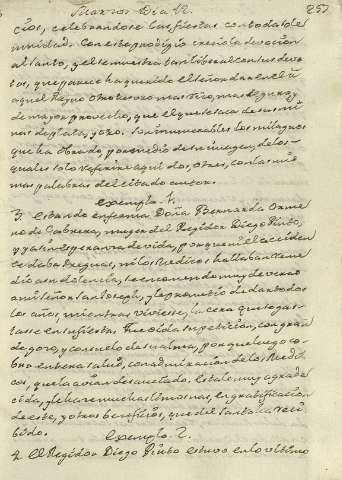 Marzo Dia 12. 257
cios, celebrandose las fiestas con toda so
lemnidad. Con este prodigio crecio la devocion
al Santo, y el se muestra tan liberal con sus devo
tos, que parece ha querido el Señor darle en
aquel Reyno otro tesoro mas rico, mas seguro, y
de mayor provecho, que el que se saca de sus mi
nas de plata, y oro. Son innumerables los milagros
que ha obrado, por medio de su imagen, de los
quales solo referire aqui dos, o tres, con las mis
mas palabras del citado autor.
Exemplo 1.
3. Estando enferma Doña Bernarda
de Cabrera, muger del Regidor Diego Pinto,
y ya sin esperanza de vida, porque ni el acciden
te daba treguas, ni los Medicos hallaban reme
dio a su dolencia, se encomendo muy de veras
a mi Señor San Joseph, y le prometio de dar todos
los años, mientras viviesse, la cera que se gas
tasse en su fiesta. Fue oida su peticion, con gran
de gozo, y consuelo de su alma, porque luego co
bro entera salud, con admiracion de los Medi
cos, que la avian desauciado. Estale muy agrade
cida, y le hace muchas limosnas, en gratificacion
de este, y otros beneficios, que del Santo ha reci
bido.
Exemplo 2.
4. El Regidor Diego Pinto estuvo en lo ultimo